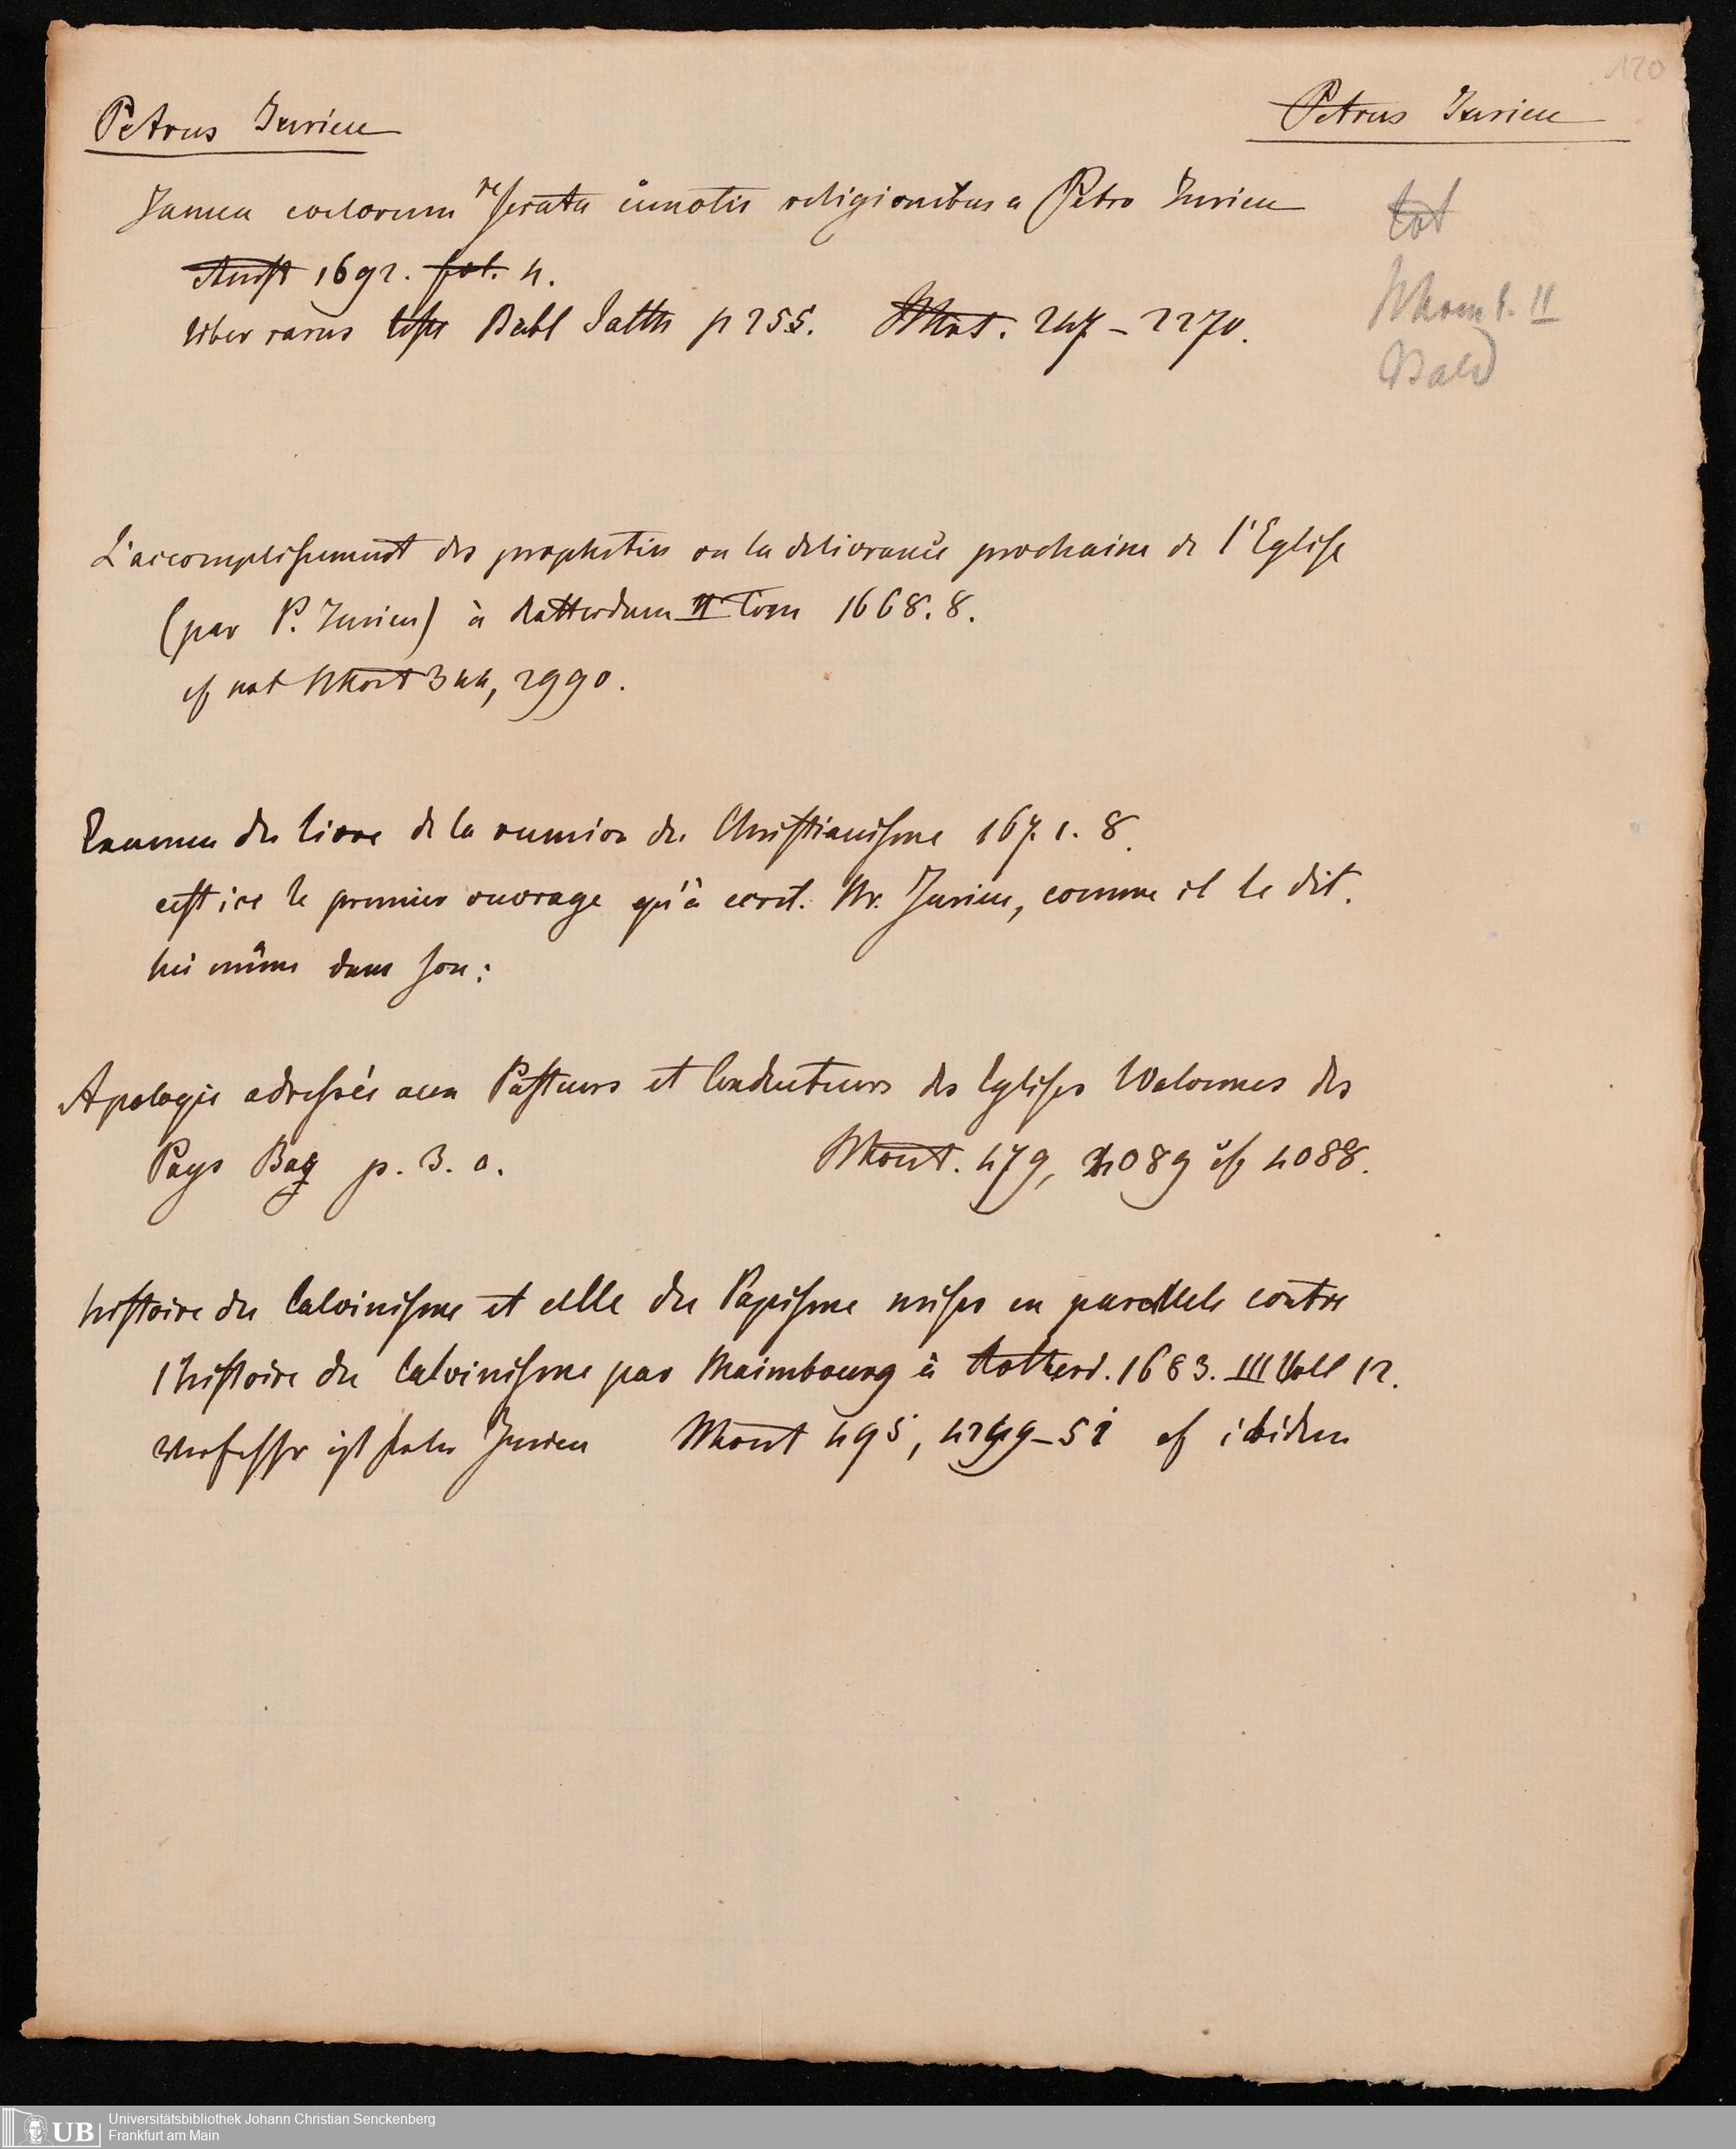 120
Petrus Jurieu
Petrus Jurieu
Janua coelorum reserata cunctis religionibus a Petro Jurieu
Amst 1692. fol. 4.
liber rarus Bibl Salth p 255. Mont. 247 - 2270.
tot
II
Bald
L'accomplissement des propheties ou la delivrance prochaine de l'Eglise
(par P. Jurieu) à Rotterdam II Tom 1668. 8.
cf not Mont 344, 2990.
Examen du livre de la reunion du Christianisme 1671. 8.
cest ice le premier ouvrage qu'à ecrit. Mr. Jurieu, comme il le dit.
lui même dans son:
Apologie adressée aux Pasteurs et Conducteurs des Eglises Walonnes des
Pays Bas p. 3. a. Mont. 479, 4089 cf 4088.
histoire du Calvinisme et celle du Papisme mises en parallele contre
l'histoire du Calvinisme par Maimbourg à Rotterd. 1683. III Voll 12.
Verfasser ist Peter Jurieu Mont 495, 4249-51 cf ibidem
UB
Universitätsbibliothek Johann Christian Senckenberg
Frankfurt am Main